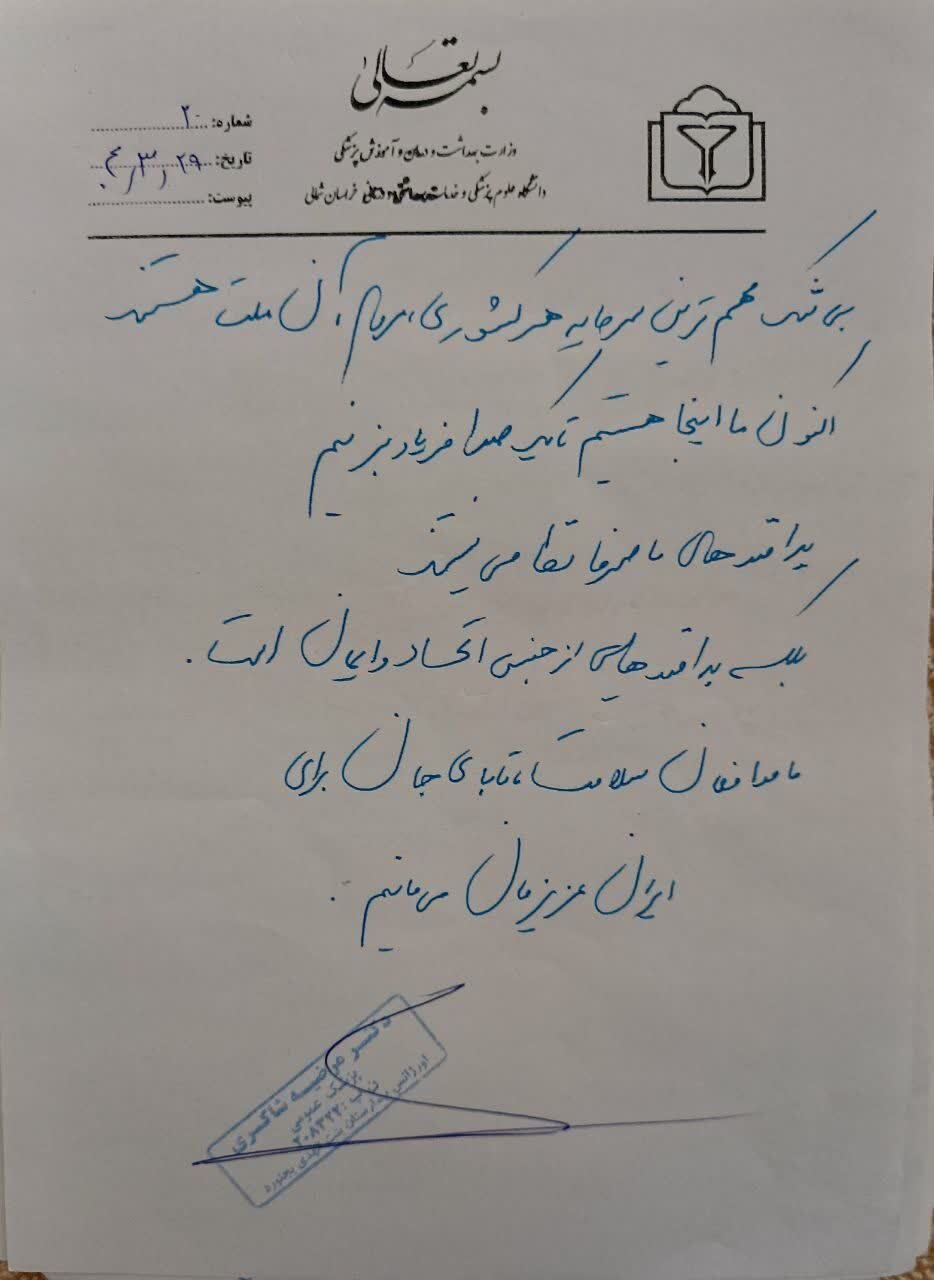 بسمه تعالی
وزارت بهداشت و درمان و آموزش پزشکی
دانشگاه علوم پزشکی و خدمات بهداشتی و درمانی خراسان شمالی
شماره: ۲۰
تاریخ: ۲۹ر۳ر۰۴
پیوست:
بی شک مهم ترین سرمایه هر کشوری، مردم آن ملت هستند
اکنون ما اینجا هستیم تا یک صدا فریاد بزنیم
پدافندهای ما صرفا نظامی نیستند
بلکه پدافندهایی از جنس اتحاد و ایمان است.
ما مدافعان سلامت، تا پای جان برای
ایران عزیزمان می مانیم.
دکتر مرضیه شاکری
پزشک عمومی
ن.پ: ۲۰۸۳۲۲
اورژانس بیمارستان بنت الهدی بجنورد